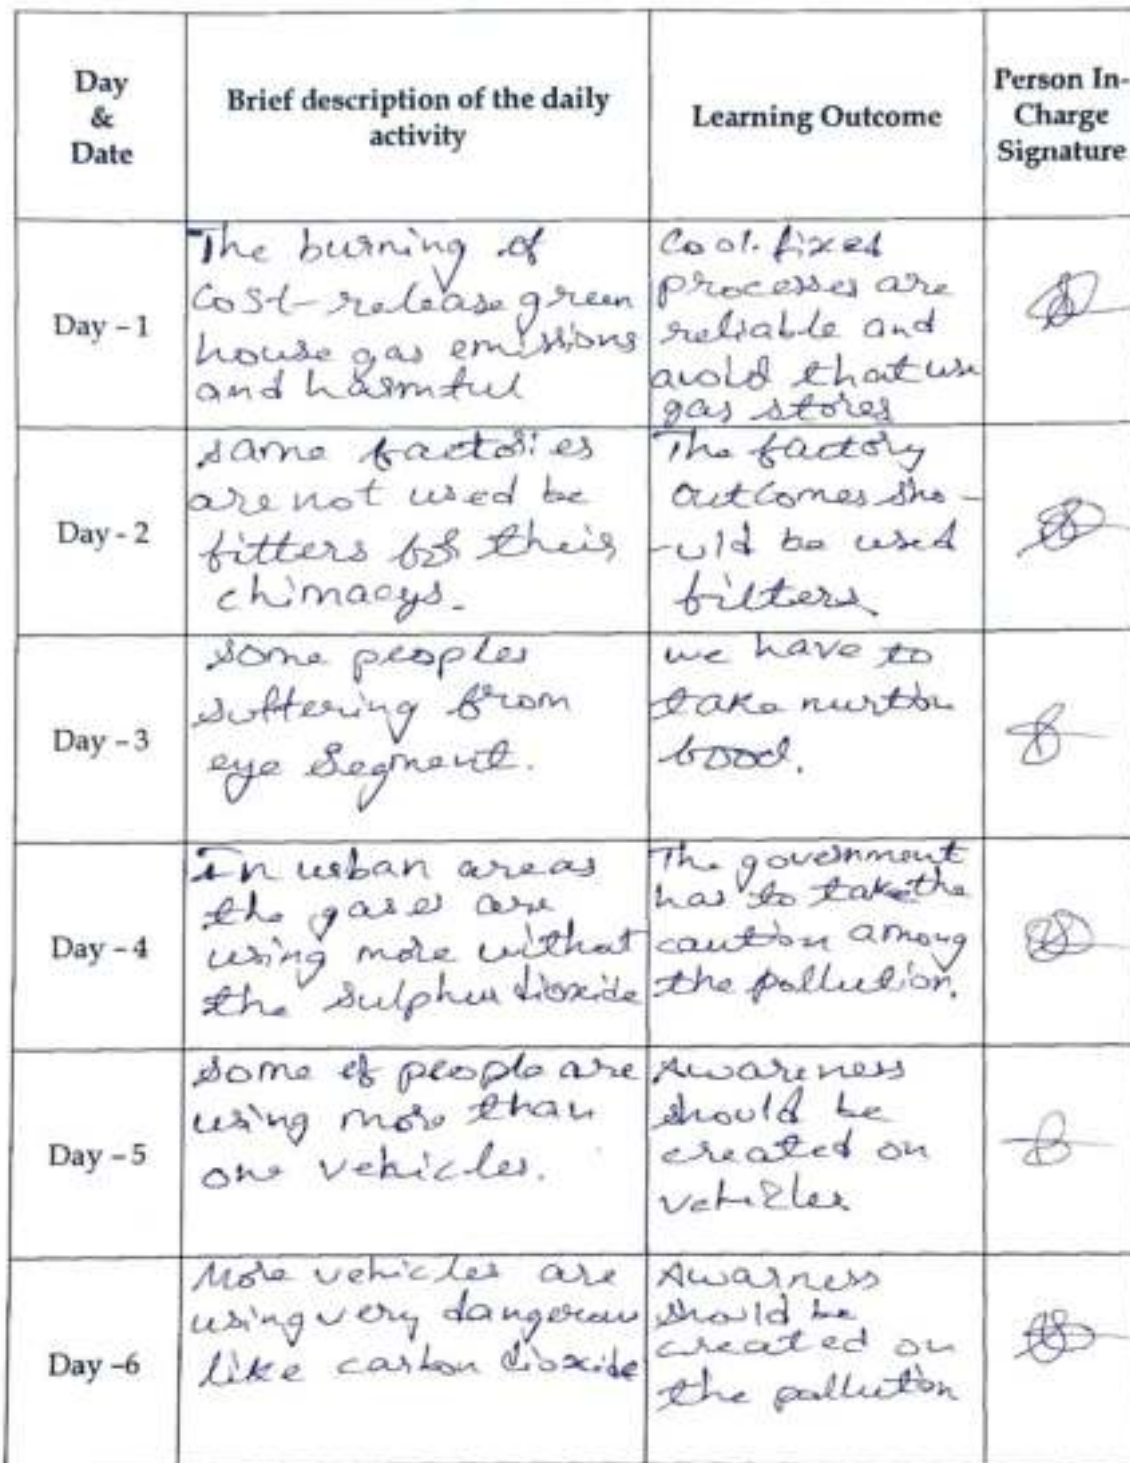 Day
&
Date
Brief description of the daily
activity
Learning Outcome
Person In-
Charge
Signature
Day – 1
The burning of
Cost - release green
house gas emissions
and harmful
Cool. fixed
processes are
reliable and
avoid that use
gas stores
Day - 2
same factories
are not used be
fitters for their
chimacys.
The factory
outcomes sho -
- uld be used
filters.
Day – 3
some peoples
suffering from
eye segment.
we have to
take nurtion
food.
Day – 4
In urban areas
the gases are
using more without
the sulphur dioxide
The government
has to take the
caution among
the pollution.
Day – 5
some of people are
using more than
one vehicles.
Awareness
should be
created on
vehicles
Day –6
More vehicles are
using very dangerous
like carbon dioxide
Awarness
should be
created on
the pollution